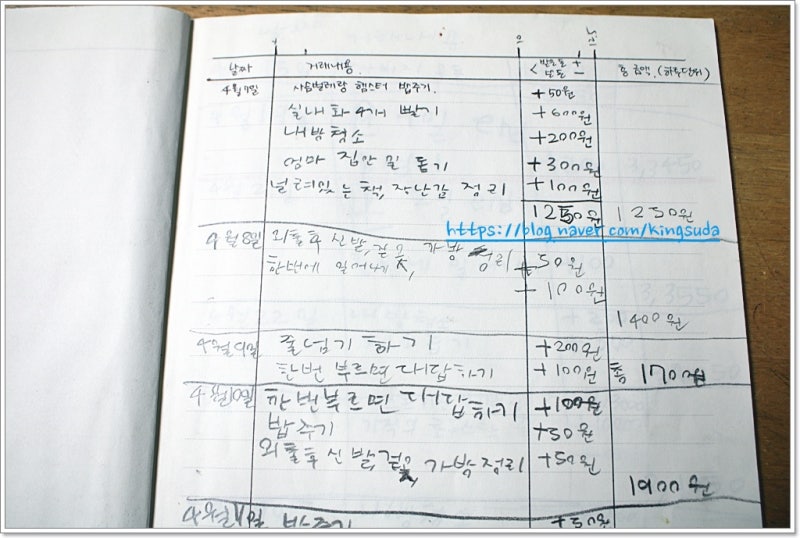 날짜 거래내용 <받으로 + 총 금액. (하루단위)
또는 -
4월7일 사슴벌레랑 햄스터 밥주기. +50원
실내화4개 빨기 +600원
내방청소 +200원
엄마 집안일 돕기 +300원
널려있는 책, 장난감 정리 +100원
1250원 1250원
https://blog.naver.com/kingsuda
4월8일 외출후 신발, 겉옷, 가방 정리 +50원
한번에 일어나기, 100원
1400원
4월9일 줄넘기 하기 +200원
한번 부르면 대답하기 +100원 총 1700
4월10일 한번부르면 대답하기 +100원
밥주기 +50원
외출후 신발, 겉옷, 가방정리 +50원
1900원
4월11일 밥주기 +50원